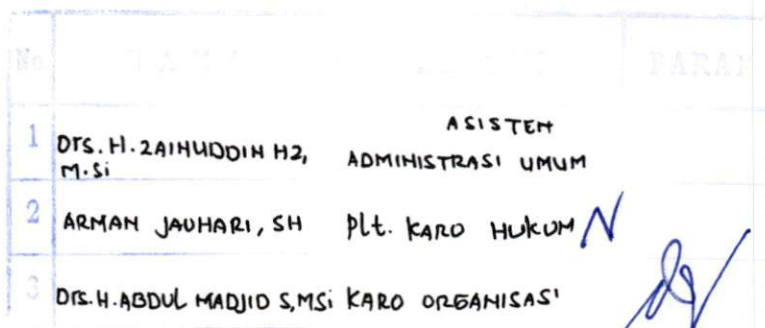 No N A M A PARAF
ASISTEN
1 Drs. H. ZAINUDDIN HZ, ADMINISTRASI UMUM
M.Si
2 ARMAN JAUHARI, SH Plt. KARO HUKUM
3 Drs. H. ABDUL MADJID S, MSi KARO ORGANISASI